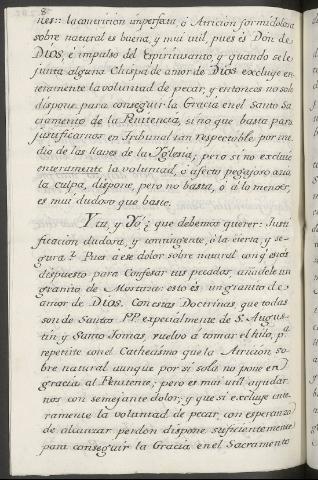 8
nes:: la contricion imperfata, ó Atricion formidolosa
sobre natural es buena, y mui util, pues és Dón de
DIOS, é impulso del Espiritusanto, y quando sele
junta alguna Chispa de amor de DIOS excluye en-
teramente la voluntad de pecar, y entonces no solo
dispone para conseguir la Gracia en el Santo Sa-
cramento de la Penitencia, si no que basta para
justificarnos en Tribunal tan respectable por me-
dio de las llaves de la Yglesia; pero si no excluie
enteramente la voluntad, ó afecto pegajoso azia
la culpa, dispone, pero no basta, ó á lo menos,
es mui dudoso que baste.
Y tu, y Yó, ¿ que debemos querer: Justi-
ficación dudosa, y contingente, ó la cierta, y se-
gura? Pues a ese dolor sobre natural con q.e estás
dispuesto para Confesar tus pecados, añadele un
granito de Mostaza: esto és un granito de
amor de DIOS. Con estas Doctrinas, que todas
son de Santos PP. expecialmente de S. Agus-
tin y Santo Tomas, vuelvo á tomar el hilo, p.a
repetirte con el Cathecismo que la Atricion so-
bre natural aunque por si sola no pone en
gracia al Penitente; pero es mui util ayudar-
nos con semejante dolor; y que si excluye ente-
ramente la voluntad de pecar, con esperanza
de alcanzar perdon dispone suficientemente
para conseguir la Gracia en el Sacramento